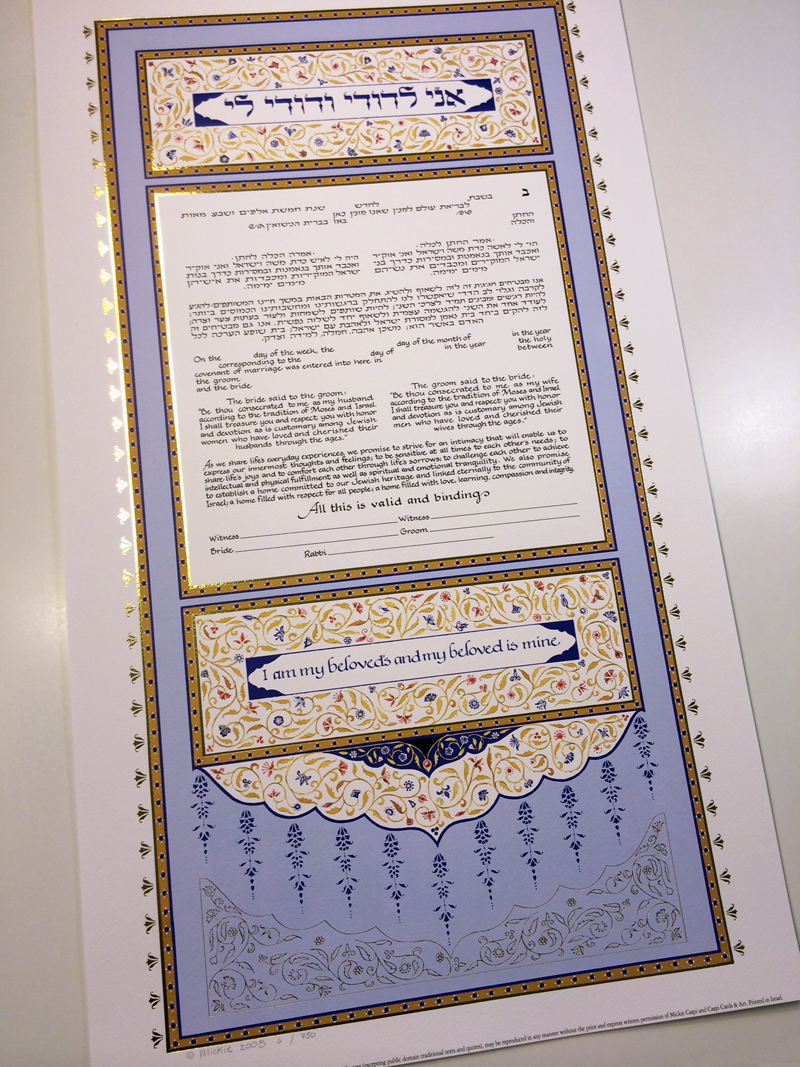 אני לדודי ודודי לי
ב
בשבת
לחדש
שנת חמשת אלפים ושבע מאות
לבריאת עולם למנין שאנו מונין כאן
החתן
באו בברית הנישואין
והכלה
אמר החתן לכלה:
הוי לי לאשה כדת משה וישראל ואני אוקיר
ואכבד אותך בנאמנות ובמסירות כדרך בני
ישראל המוקירים ומכבדים את נשיהם
מימים ימימה.
אמרה הכלה לחתן:
היה לי לאיש כדת משה וישראל ואני אוקיר
ואכבד אותך בנאמנות ובמסירות כדרך בנות
ישראל המוקירות ומכבדות את אישיהן
מימים ימימה.
אנו מבטיחים חגיגית זה לזה לשאוף ולהשיג את המטרות הבאות במשך חיינו המשותפים: להגיע
לקרבה וגלוי לב הדדי שיאפשרו לנו להתחלק ברגשותינו ומחשבותינו הכמוסים ביותר;
להיות רגישים ומבינים תמיד לצרכי השני; להיות שותפים לשמחות ולעזור בעתות צער וצרה;
לעודד אחד את השני להגשמה עצמית ולשאוף יחד לשלוה נפשית. אנו גם מבטיחים זה
לזה להקים ביחד בית נאמן למסורת ישראל ולאהבת עם ישראל; בית שופע הערכה לכל
האדם באשר הוא; משכן אהבה, חמלה, למידה וצדק.
On the day of the week, the day of the month of in the year
corresponding to the day of in the year the holy
covenant of marriage was entered into here, in between
the groom,
and the bride
The bride said to the groom:
"Be thou consecrated to me, as my husband
according to the tradition of Moses and Israel.
I shall treasure you and respect you with honor
and devotion as is customary among Jewish
women who have loved and cherished their
husbands through the ages."
The groom said to the bride:
"Be thou consecrated to me, as my wife
according to the tradition of Moses and Israel
I shall treasure you and respect you with honor
and devotion as is customary among Jewish
men who have loved and cherished their
wives through the ages."
As we share life's everyday experiences, we promise to strive for an intimacy that will enable us to
express our innermost thoughts and feelings; to be sensitive at all times to each other's needs; to
share life's joys and to comfort each other through life's sorrows; to challenge each other to achieve
intellectual and physical fulfillment as well as spiritual and emotional tranquility. We also promise
to establish a home committed to our Jewish heritage and linked eternally to the community of
Israel; a home filled with respect for all people; a home filled with love, learning, compassion and integrity.
All this is valid and binding
Witness Witness
Bride Groom
Rabbi
I am my beloved's and my beloved is mine
© Mickie 2005 6 / 750
(excepting public domain traditional texts and quotes), may be reproduced in any manner without the prior and express written permission of Mickie Caspi and Caspi Cards & Art. Printed in Israel.